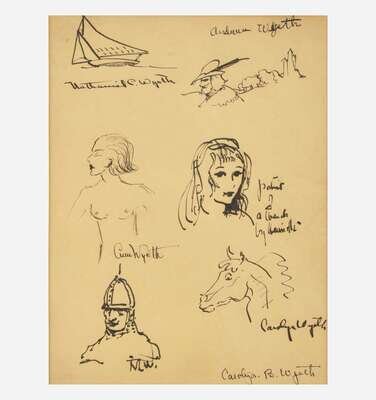 Andrew Wyeth
Nathaniel C. Wyeth
Ann Wyeth
portrait
of
a
by
Carolyn Wyeth
N.C.W.
Carolyn. B. Wyeth